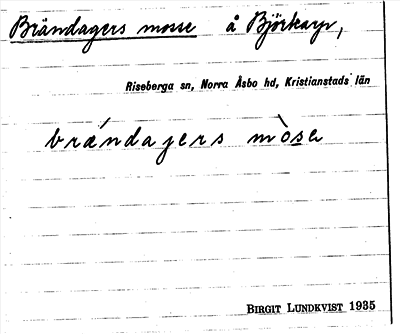 Brändagers mosse å Björkarp,
Riseberga sn, Norra Åsbo hd, Kristianstads län
brándaʝers mòse
BIRGIT LUNDKVIST 1935